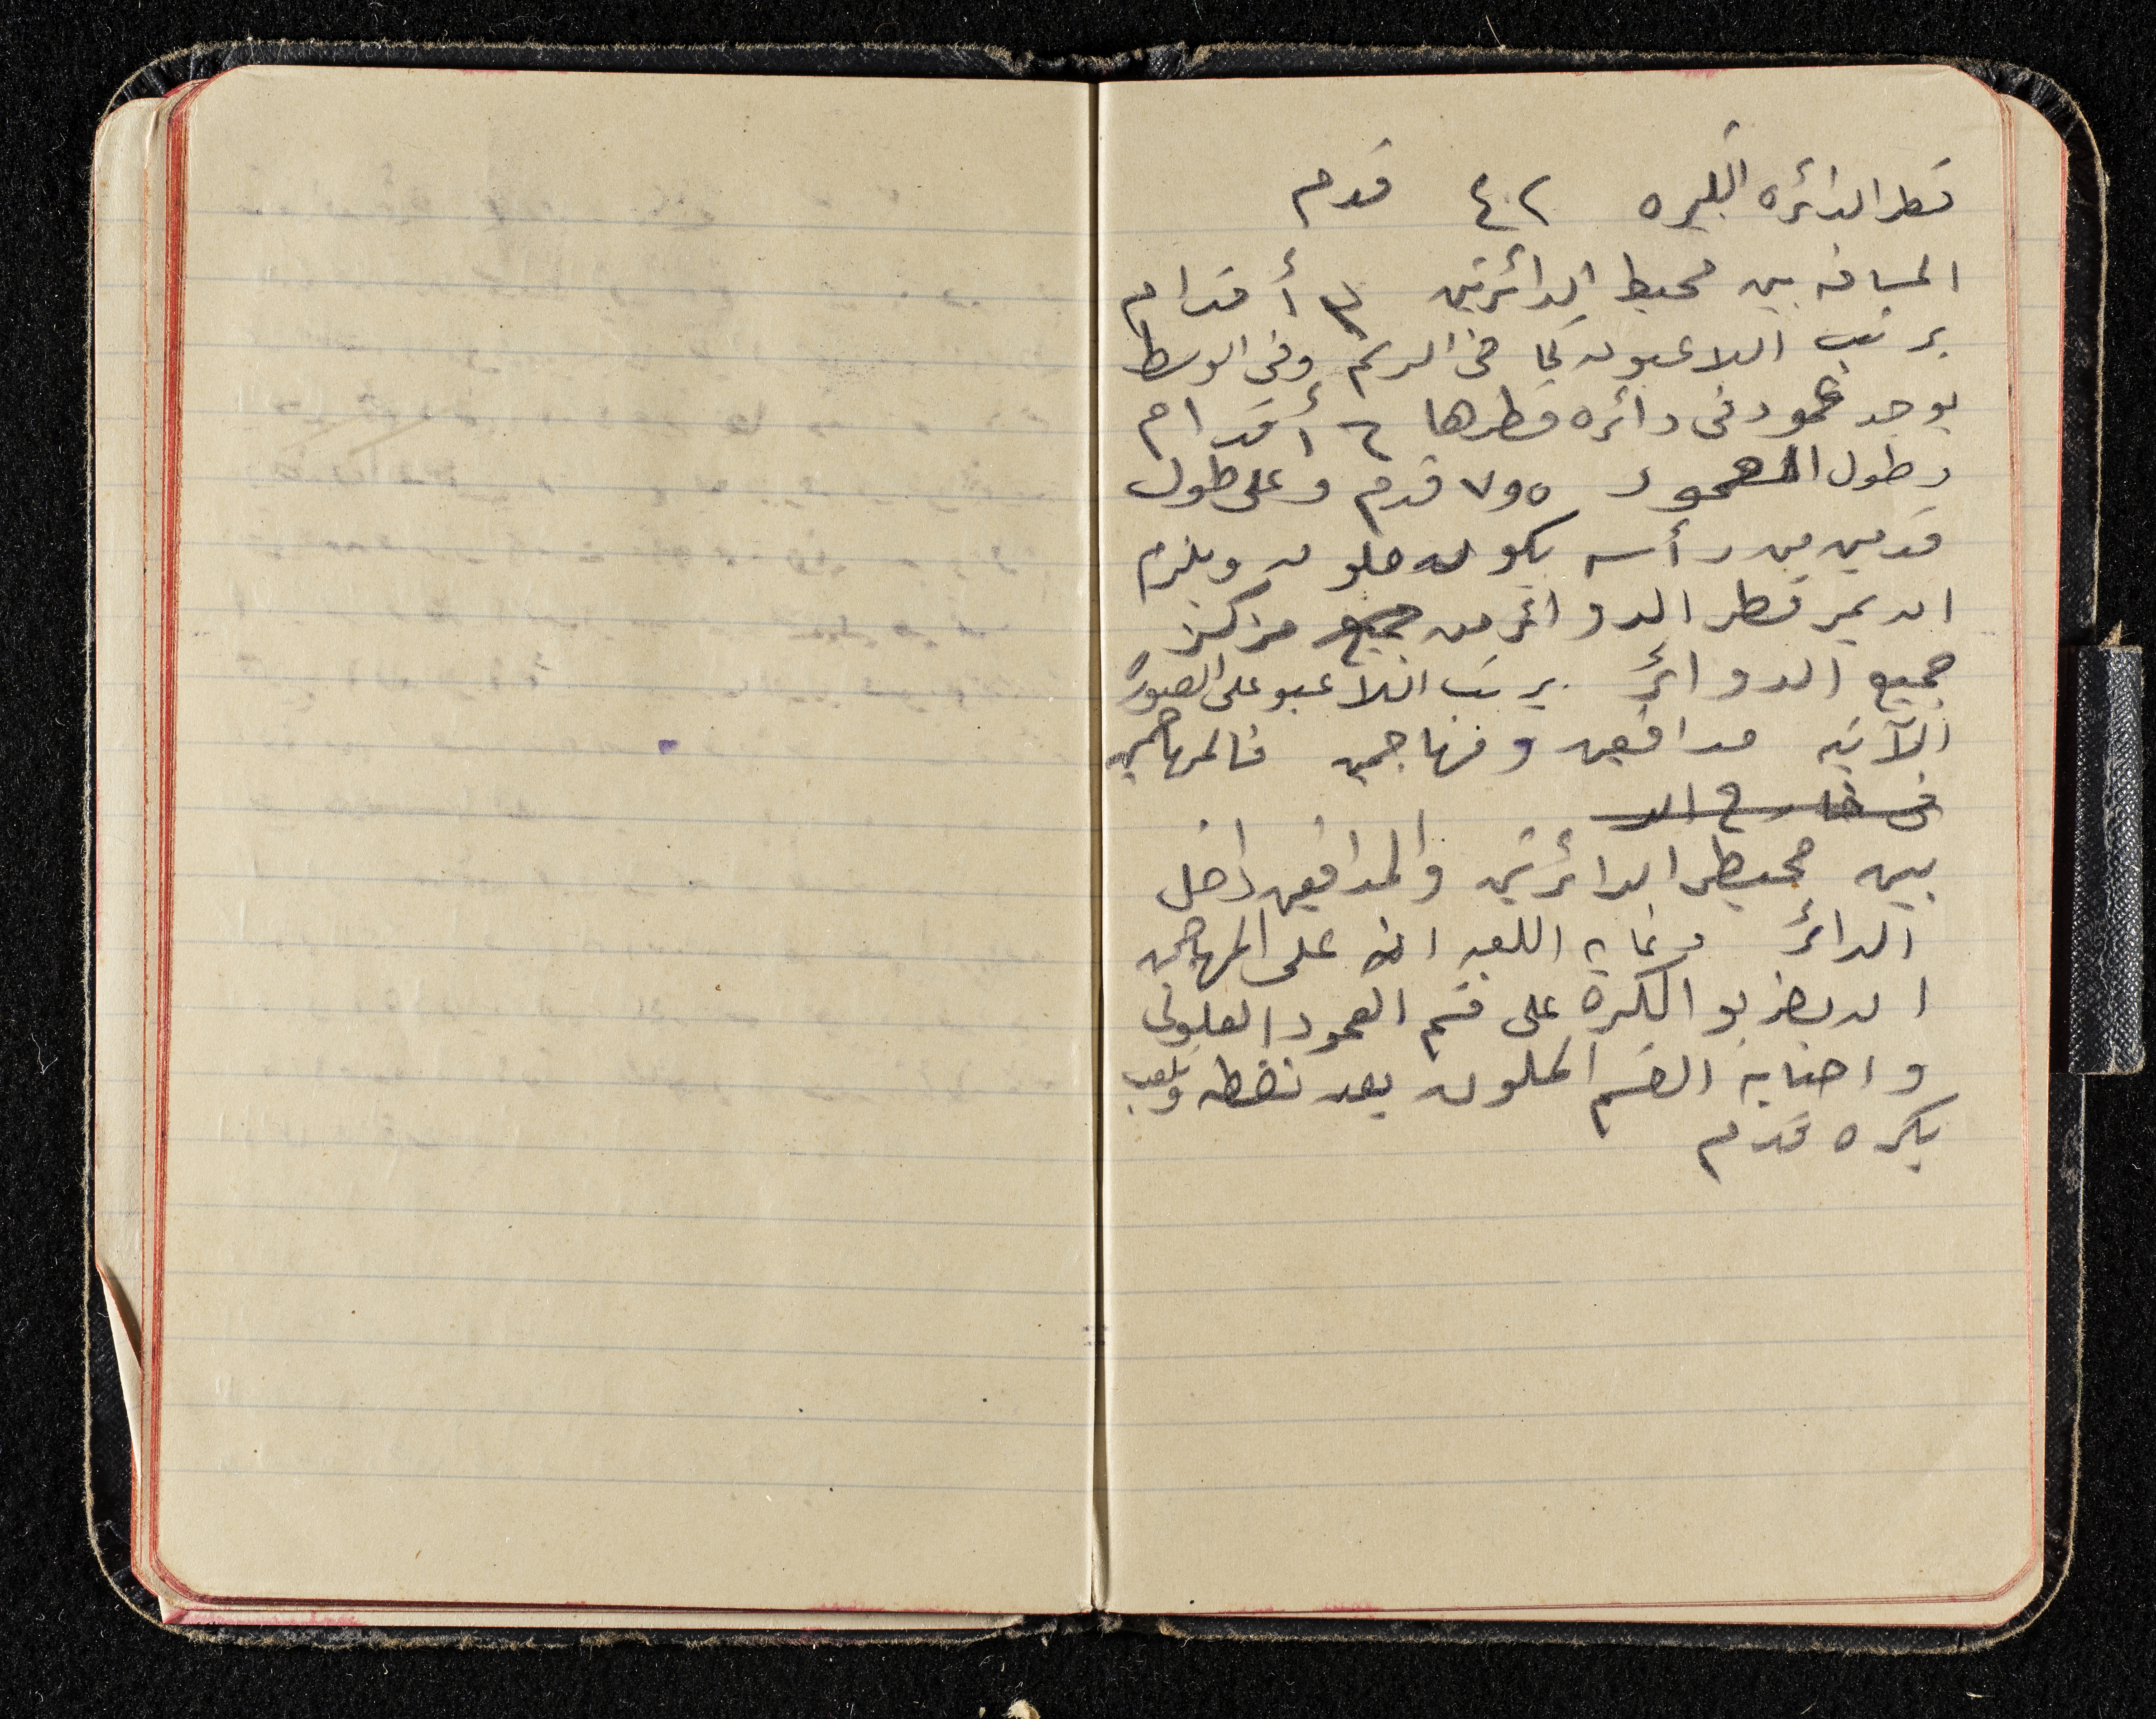 قطر الدائره الكبيره ٤٢ قدم
المسافه بين محيط الدائرتين ٣ أقدام
يرتب اللاعبون كما في الرسم وفي الوسط
يوجد عمود في دائره قطرها ٦ أقدام
وطول العمود ٧٫٥ قدم وعلى طول
قدمين من رأسه يكون ملون ويلزم
ان يمر قطر الدوائر من جميع مركز
جميع الدوائر يرتب اللاعبو على الصورة
الآتيه مدافعين ومهاجمين فالمهاجمين
في خارج الد
بين محيط الدائرتين والمدافعين داخل
الدائر وغاية اللعبه انه على المهاجمين
ان يضربو الكرة على قسم العمود العلوي
واصابة القسم الملون يعد نقطه وتلعب
بكره قدم